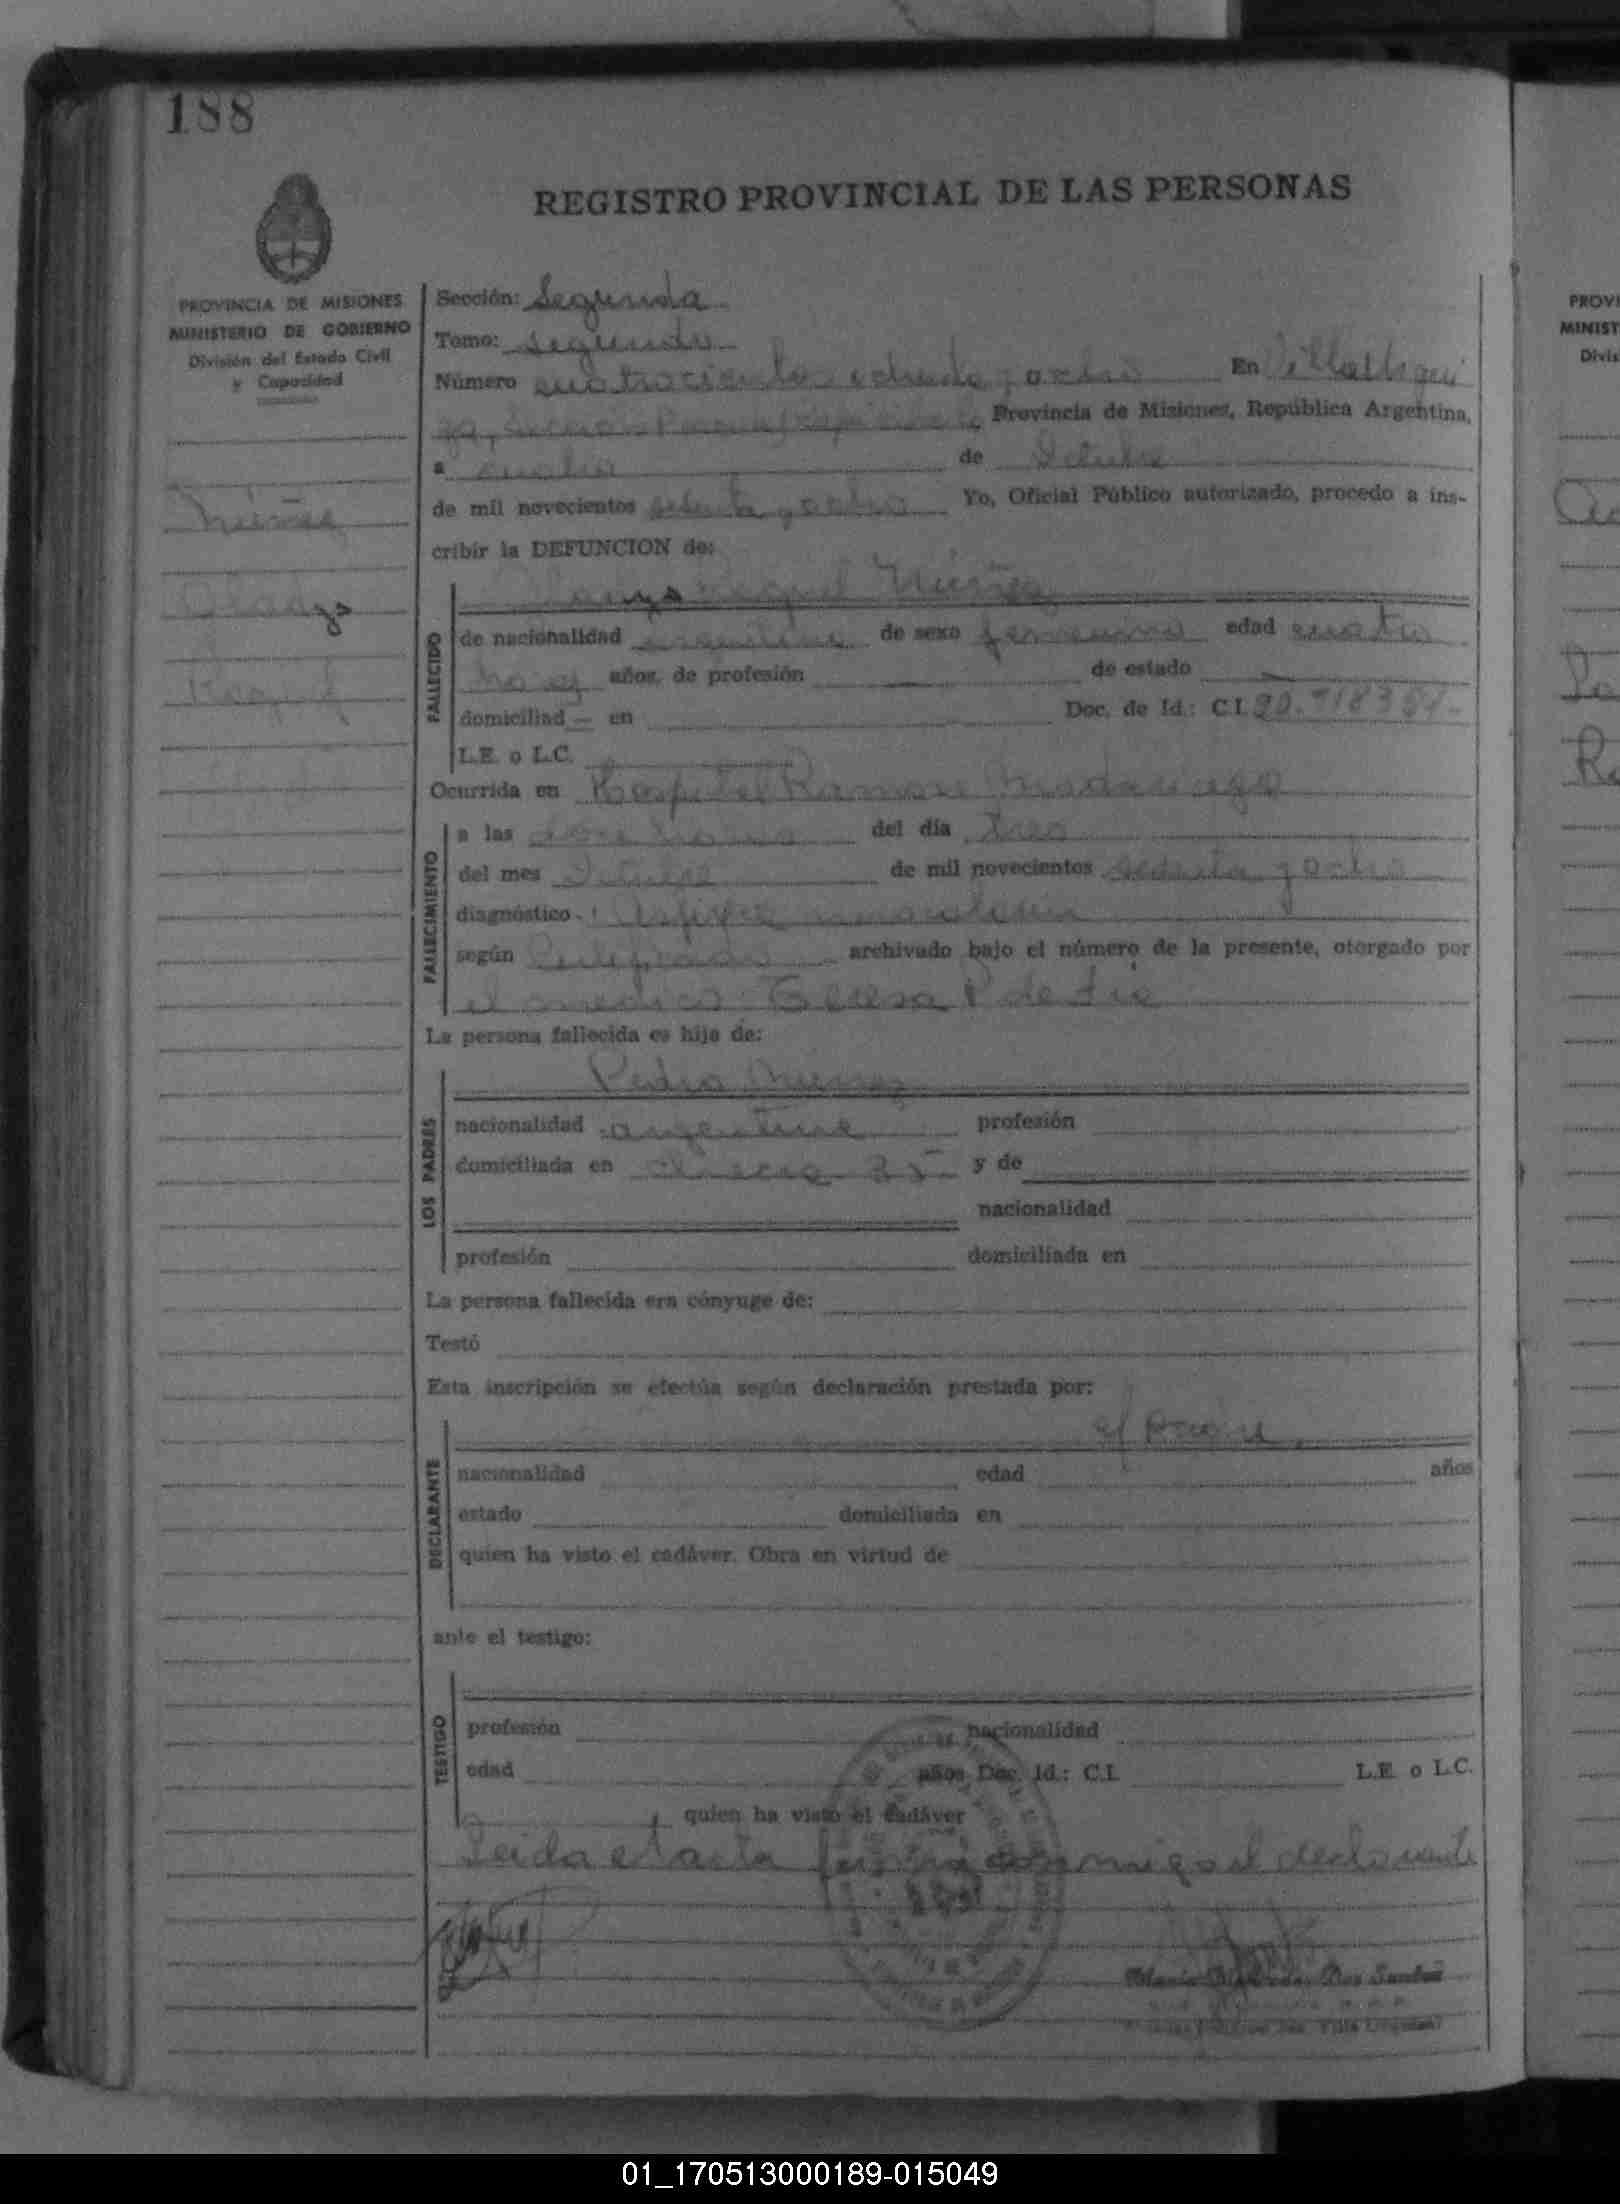 188
REGISTRO PROVINCIAL DE LAS PERSONAS
PROVINCIA DE MISIONES
MINISTERIO DE GOBIERNO
División del Estado Civil
y Capacidad
Núñez
Gladys
Raquel
Sección: Segunda
Tomo: segundo
Número cuatrocientos ochenta y ocho En Villa Urqui
za, Provincia de Misiones, República Argentina,
a cuatro de Octubre
de mil novecientos setenta y ocho Yo, Oficial Público autorizado, procedo a ins-
cribir la DEFUNCION de:
Raquel Núñez
FALLECIDO
de nacionalidad argentina de sexo femenino edad cuatro
años, de profesión — de estado —
domiciliad — en Doc. de Id.: C.I.
L.E. o L.C.
Ocurrida en Hospital Ramón Madariaga
FALLECIMIENTO
a las doce horas del día tres
del mes Octubre de mil novecientos setenta y ocho
diagnóstico Asfixia
según Certificado archivado bajo el número de la presente, otorgado por
el médico Teresa P de
La persona fallecida es hija de:
LOS PADRES
Pedro Núñez
nacionalidad argentina profesión
domiciliada en chacra 35 y de
nacionalidad
profesión domiciliada en
La persona fallecida era cónyuge de:
Testó
Esta inscripción se efectúa según declaración prestada por:
DECLARANTE
nacionalidad edad años
estado domiciliada en
quien ha visto el cadáver. Obra en virtud de
ante el testigo:
TESTIGO
profesión nacionalidad
edad años Doc. Id.: C.I. L.E. o L.C.
quien ha visto el cadáver
Leida el acta firma conmigo el declarante
Dos Santos
PROVI
MINIST
Divis
01_170513000189-015049